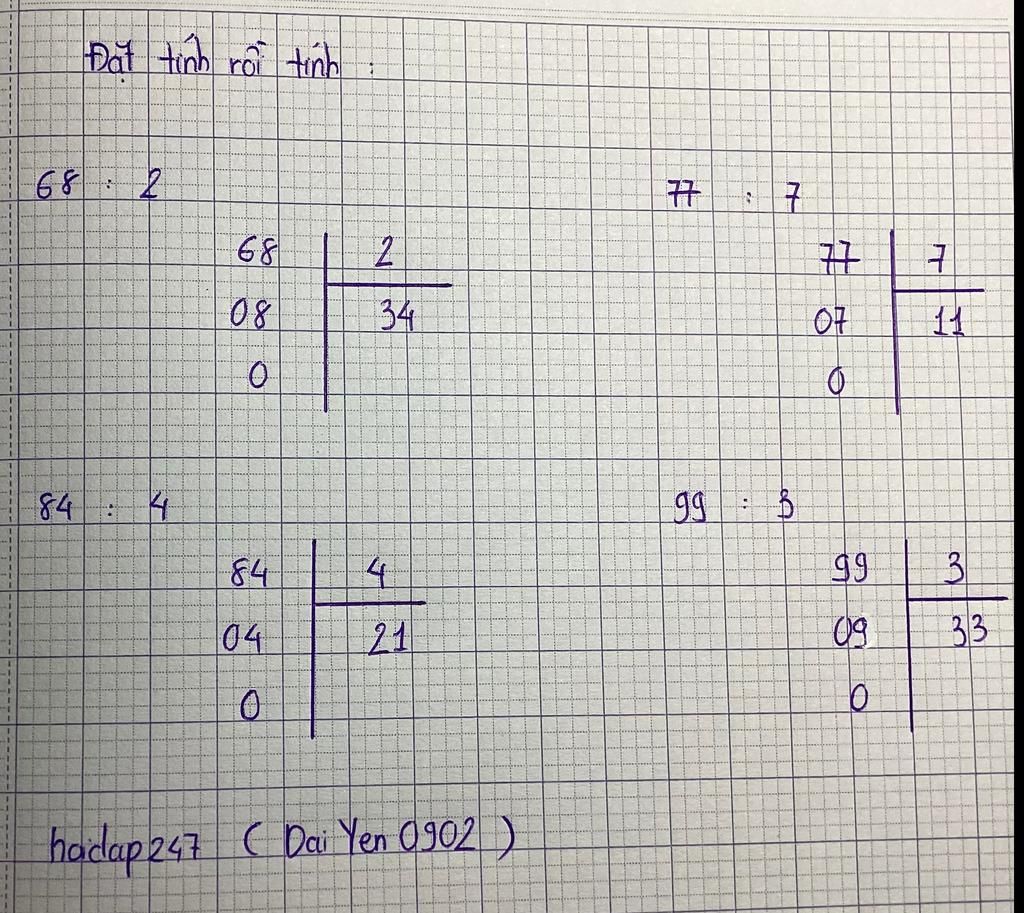 Đặt tính rồi tính :
68 : 2
77 : 7
68 2
08 34
0
77 7
07 11
0
84 : 4
99 : 3
84 4
04 21
0
99 3
09 33
0
hoidap247 ( Dai Yen 0902 )